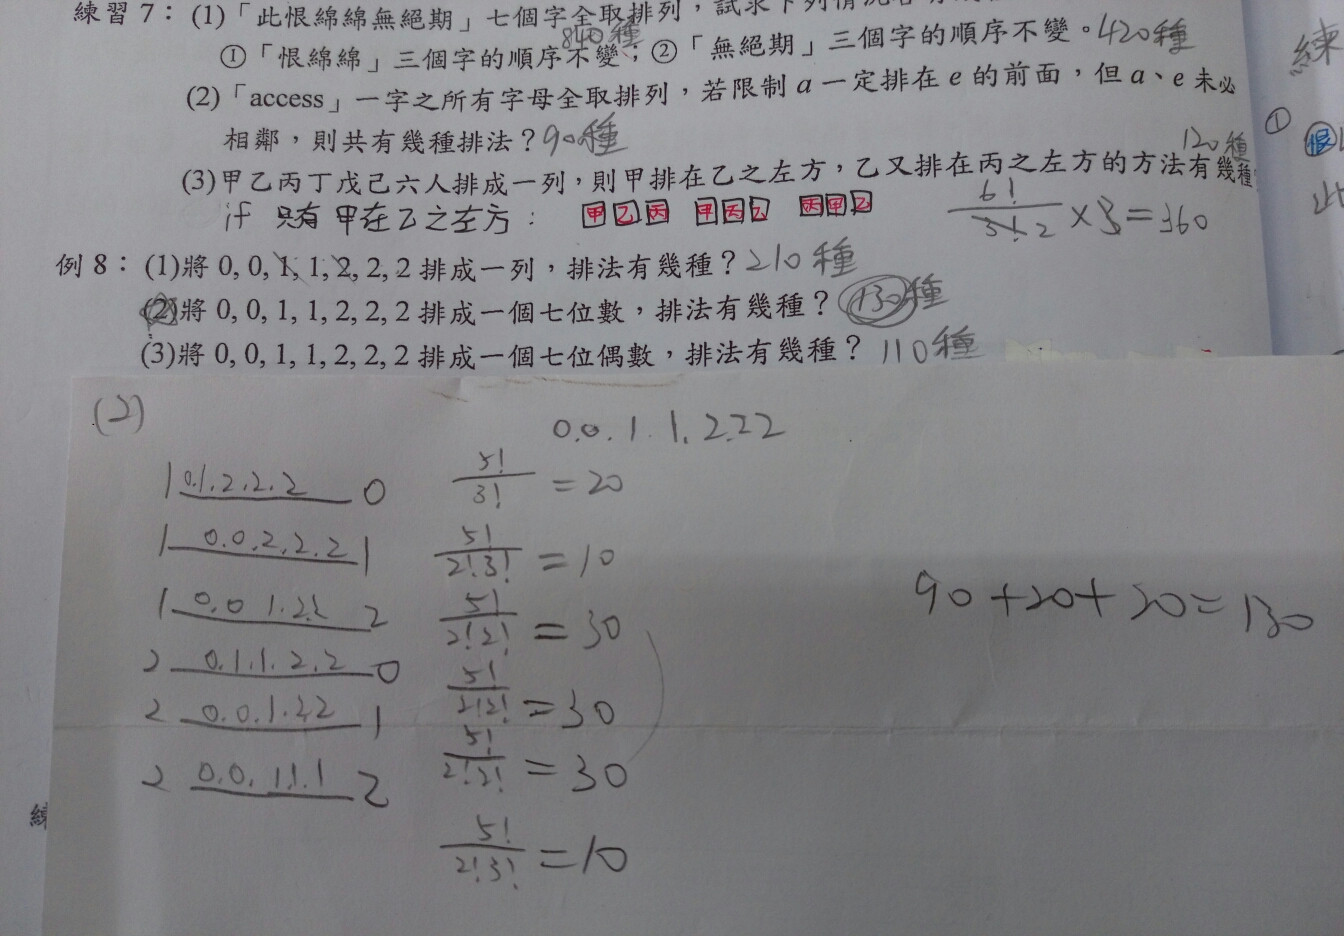 練習 7：(1)「此恨綿綿無絕期」七個字全取排列，試求下列情況各有
840種
①「恨綿綿」三個字的順序不變；②「無絕期」三個字的順序不變。420種
(2)「access」一字之所有字母全取排列，若限制 a 一定排在 e 的前面，但 a、e 未必
相鄰，則共有幾種排法？90種
120種
(3)甲乙丙丁戊己六人排成一列，則甲排在乙之左方，乙又排在丙之左方的方法有幾種
if 只有 甲在乙之左方： 甲乙丙 甲丙乙 丙甲乙
6!/3!2 ×3=360
例 8：(1)將 0, 0, 1, 1, 2, 2, 2 排成一列，排法有幾種？210種
(2)將 0, 0, 1, 1, 2, 2, 2 排成一個七位數，排法有幾種？130種
(3)將 0, 0, 1, 1, 2, 2, 2 排成一個七位偶數，排法有幾種？110種
練
①
恨
此
(2)
0.0.1.1.2.2.2
1 0.1.2.2.2 0 5!/3! =20
1 0.0.2.2.2 1 5!/2!3! =10
1 0.0 1.2.2 2 5!/2!2! =30
2 0.1.1.2.2 0 5!/2!2! =30
2 0.0.1.2.2 1 5!/2!2! =30
2 0.0.1.1.1 2 5!/2!3! =10
90+20+20=130
練